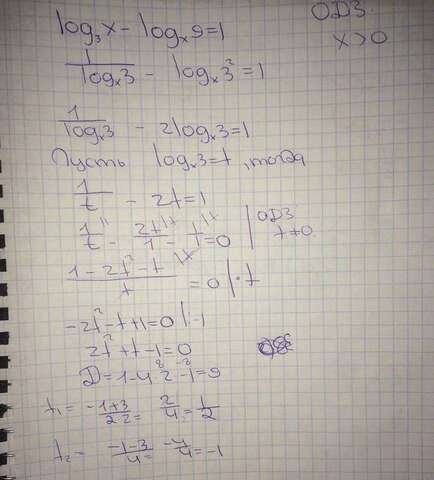 log₃x - logₓ9=1
ОДЗ.
x>0
1/logₓ3 - logₓ3²=1
1/logₓ3 - 2logₓ3=1
Пусть logₓ3=t, тогда
1/t - 2t=1
1/t - 2t/1 - t=0 | ОДЗ t≠0.
(1-2t²-t)/t =0 |·t
-2t²-t+1=0 |:-1
2t²+t-1=0
D=1-4·2·-1=9
t₁= (-1+3)/2·2= 2/4=1/2
t₂= (-1-3)/4= -4/4=-1